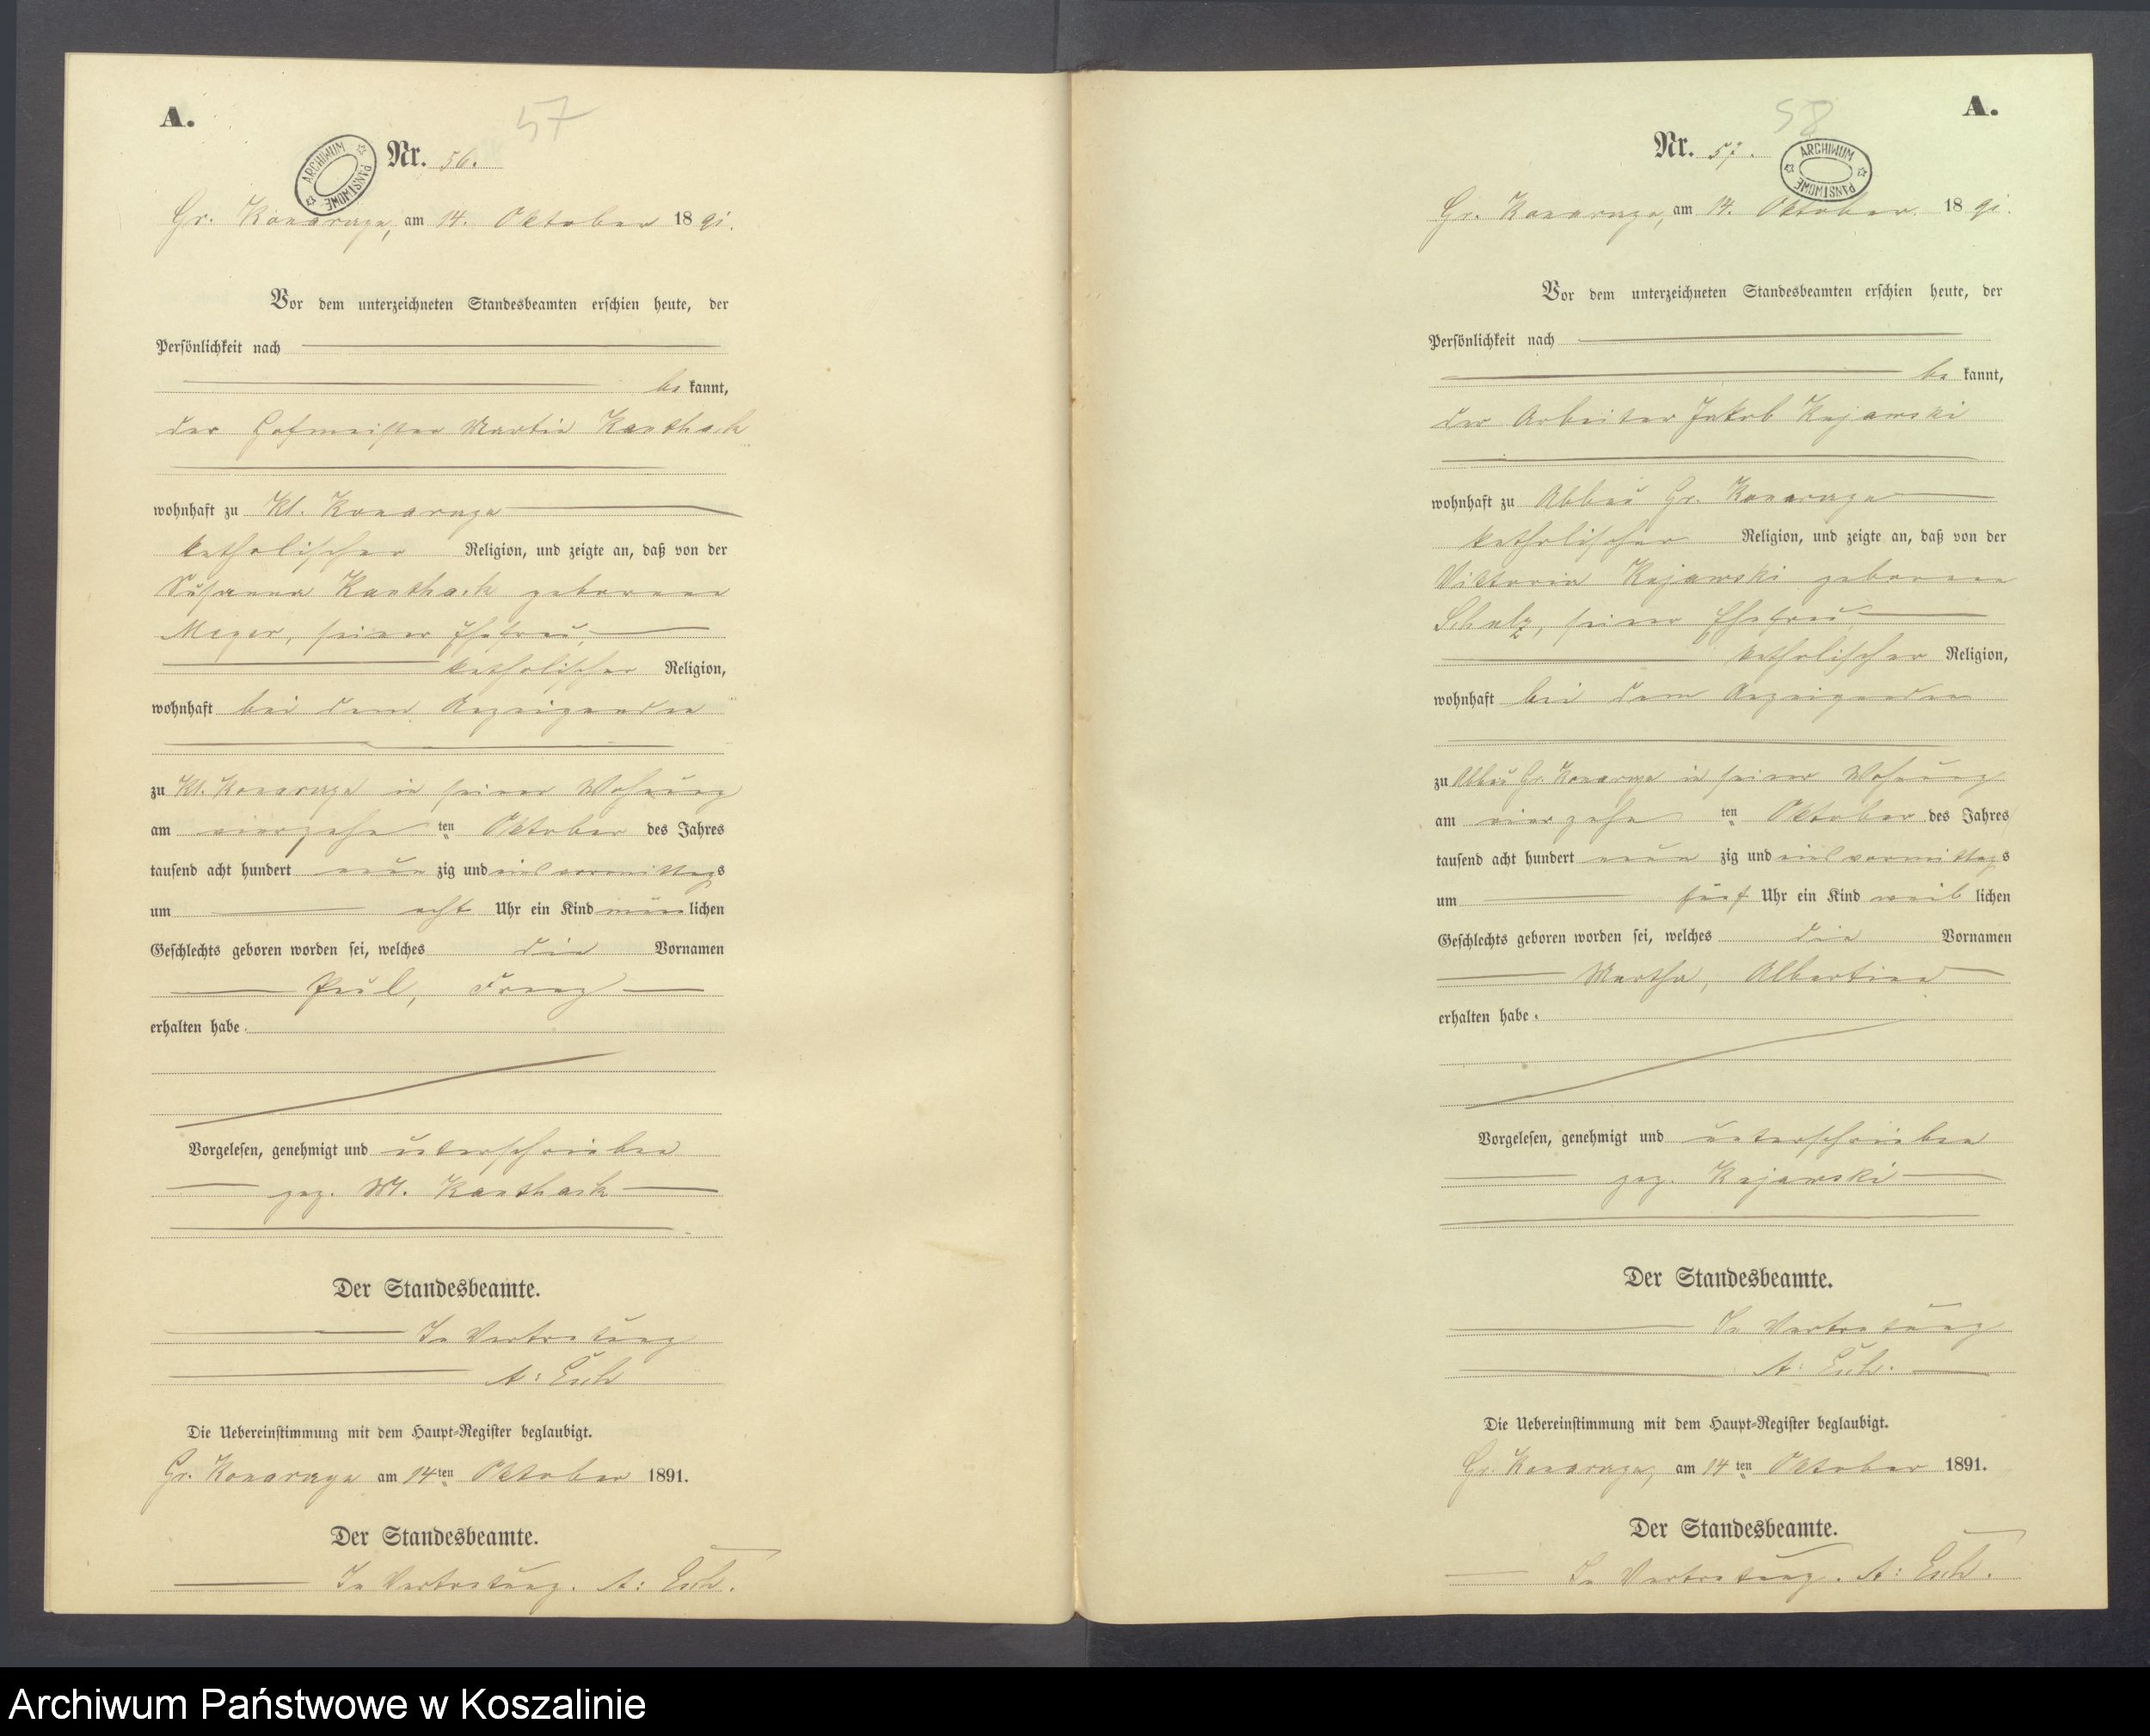 A.
57
Nr. 56.
ARCHIWUM PAŃSTWOWE
Gr. Konarczyn, am 14. Oktober 1891.
Vor dem unterzeichneten Standesbeamten erschien heute, der
Persönlichkeit nach
be kannt,
der Hofmeister Martin Kanthack
wohnhaft zu Kl. Konarczyn
katholischer Religion, und zeigte an, daß von der
Susanna Kanthack geborene
Meger, seiner Ehefrau,
katholischer Religion,
wohnhaft bei dem Anzeigenden
zu Kl. Konarczyn in seiner Wohnung
am vierzehn ten Oktober des Jahres
tausend acht hundert neun zig und eins vormittags
um acht Uhr ein Kind männlichen
Geschlechts geboren worden sei, welches die Vornamen
Paul, Franz
erhalten habe.
Vorgelesen, genehmigt und unterschrieben
gez. M. Kanthack
Der Standesbeamte.
In Vertretung
A: Esch
Die Uebereinstimmung mit dem Haupt-Register beglaubigt.
am 14ten Oktober 1891.
Der Standesbeamte.
In Vertretung. A: Esch.
A.
58
Nr. 57.
ARCHIWUM PAŃSTWOWE
am 14. Oktober 1891.
Vor dem unterzeichneten Standesbeamten erschien heute, der
Persönlichkeit nach
be kannt,
der Arbeiter Jakob Kujawski
wohnhaft zu Abbau Gr.
katholischer Religion, und zeigte an, daß von der
Viktoria Kujawski geborene
Schulz, seiner Ehefrau,
katholischer Religion,
wohnhaft bei dem Anzeigenden
zu Abbau Gr. in seiner Wohnung
am vierzehn ten Oktober des Jahres
tausend acht hundert neun zig und eins vormittags
um fünf Uhr ein Kind weib lichen
Geschlechts geboren worden sei, welches die Vornamen
Martha, Albertine
erhalten habe.
Vorgelesen, genehmigt und unterschrieben
gez. Kujawski
Der Standesbeamte.
In Vertretung
A: Esch.
Die Uebereinstimmung mit dem Haupt-Register beglaubigt.
am 14 ten Oktober 1891.
Der Standesbeamte.
In Vertretung. A: Esch.
Archiwum Państwowe w Koszalinie